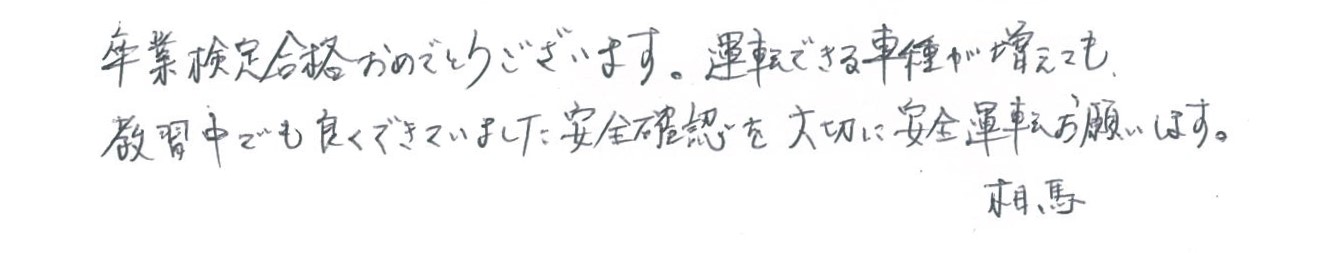 卒業検定合格おめでとうございます。運転できる車種が増えても、
教習中でも良くできていました安全確認を大切に安全運転お願いします。
相馬